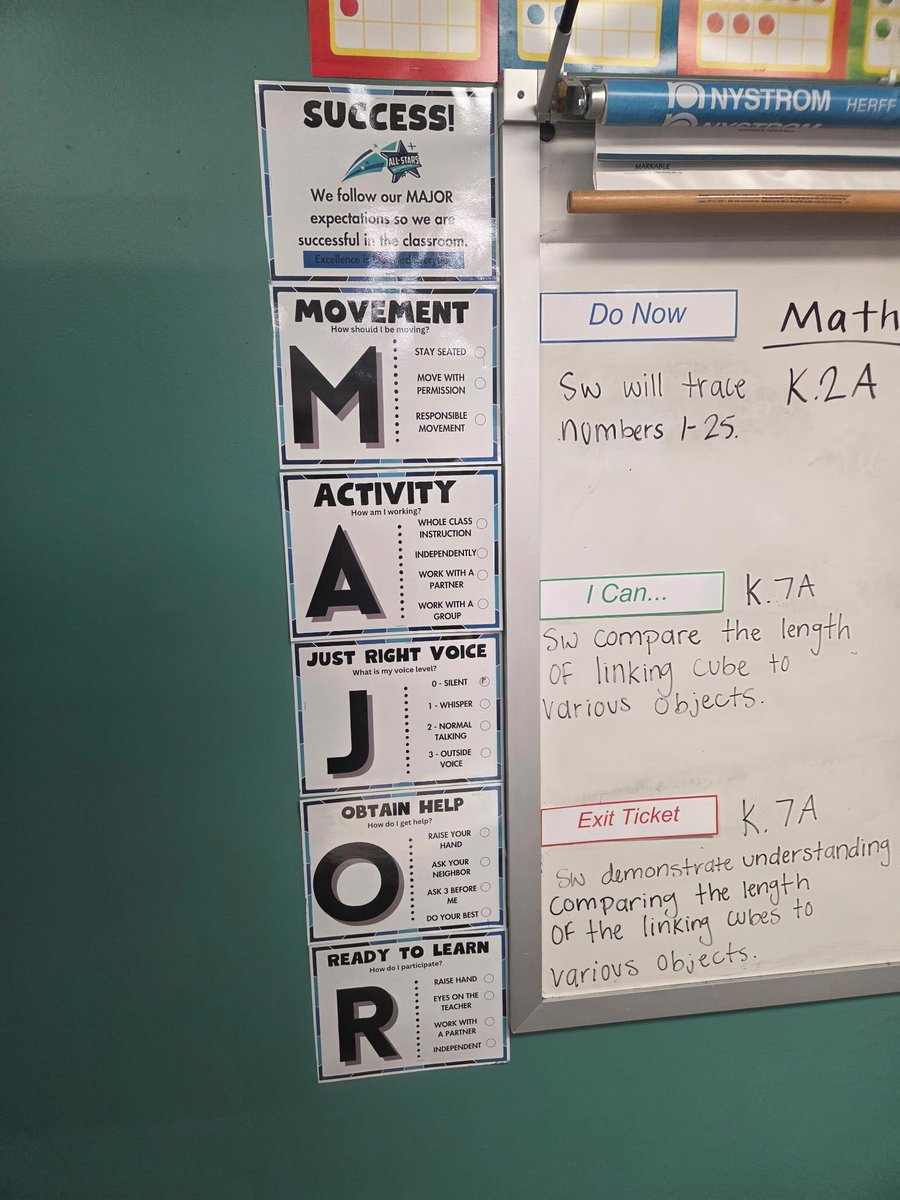 SUCCESS!
ALL-STARS
We follow our MAJOR
expectations so we are
successful in the classroom.
Excellence is
MOVEMENT
How should I be moving?
M
STAY SEATED
MOVE WITH
PERMISSION
RESPONSIBLE
MOVEMENT
ACTIVITY
How am I working?
A
WHOLE CLASS
INSTRUCTION
INDEPENDENTLY
WORK WITH A
PARTNER
WORK WITH A
GROUP
JUST RIGHT VOICE
What is my voice level?
J
0 - SILENT
1 - WHISPER
2 - NORMAL
TALKING
3 - OUTSIDE
VOICE
OBTAIN HELP
How do I get help?
O
RAISE YOUR
HAND
ASK YOUR
NEIGHBOR
ASK 3 BEFORE
ME
DO YOUR BEST
READY TO LEARN
How do I participate?
R
RAISE HAND
EYES ON THE
TEACHER
WORK WITH
A PARTNER
INDEPENDENT
NYSTROM HERFF
MARKABLE
Do Now
Math
K.2A
Sw will trace
numbers 1-25.
I Can...
K.7A
Sw compare the length
of linking cube to
various objects.
Exit Ticket
K.7A
Sw demonstrate understanding
comparing the length
of the linking cubes to
various objects.